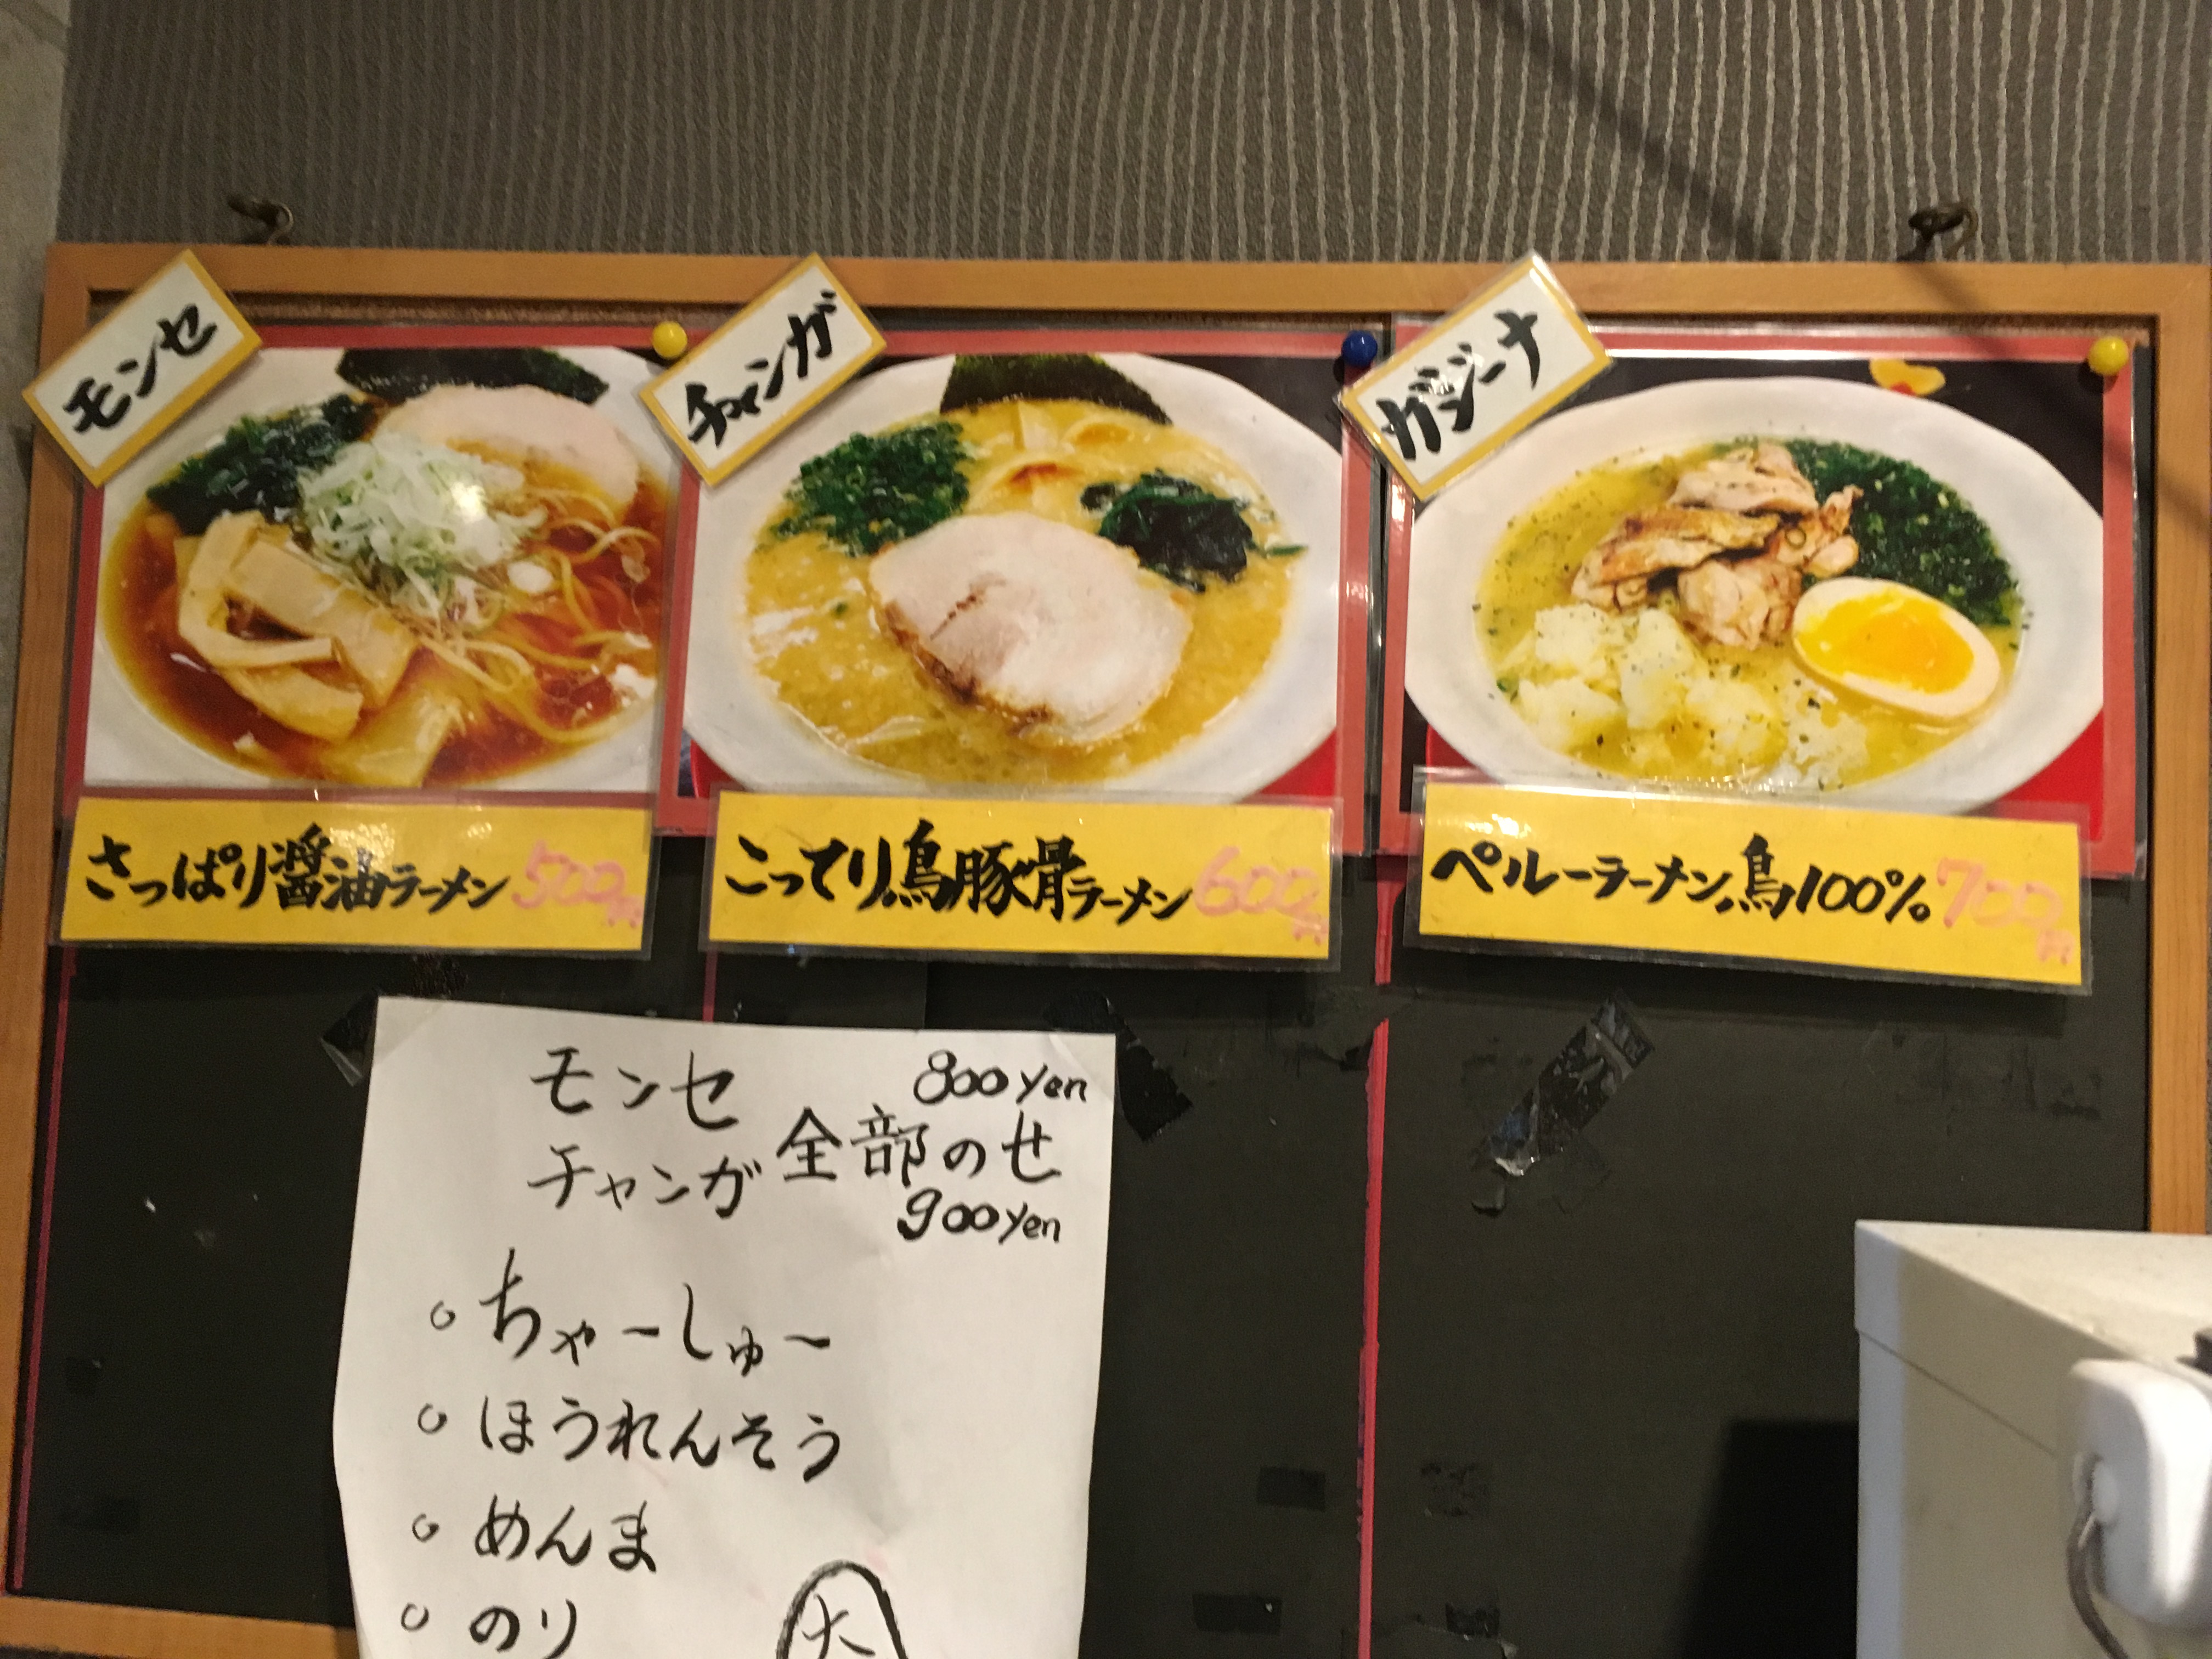 モンセ
チャンガ
ガジーナ
さっぱり醤油ラーメン500円
こってり鳥豚骨ラーメン600円
ペルーラーメン鳥100%700円
モンセ 800yen
チャンガ 全部のせ
900yen
○ちゃーしゅー
○ほうれんそう
○めんま
○のり
大